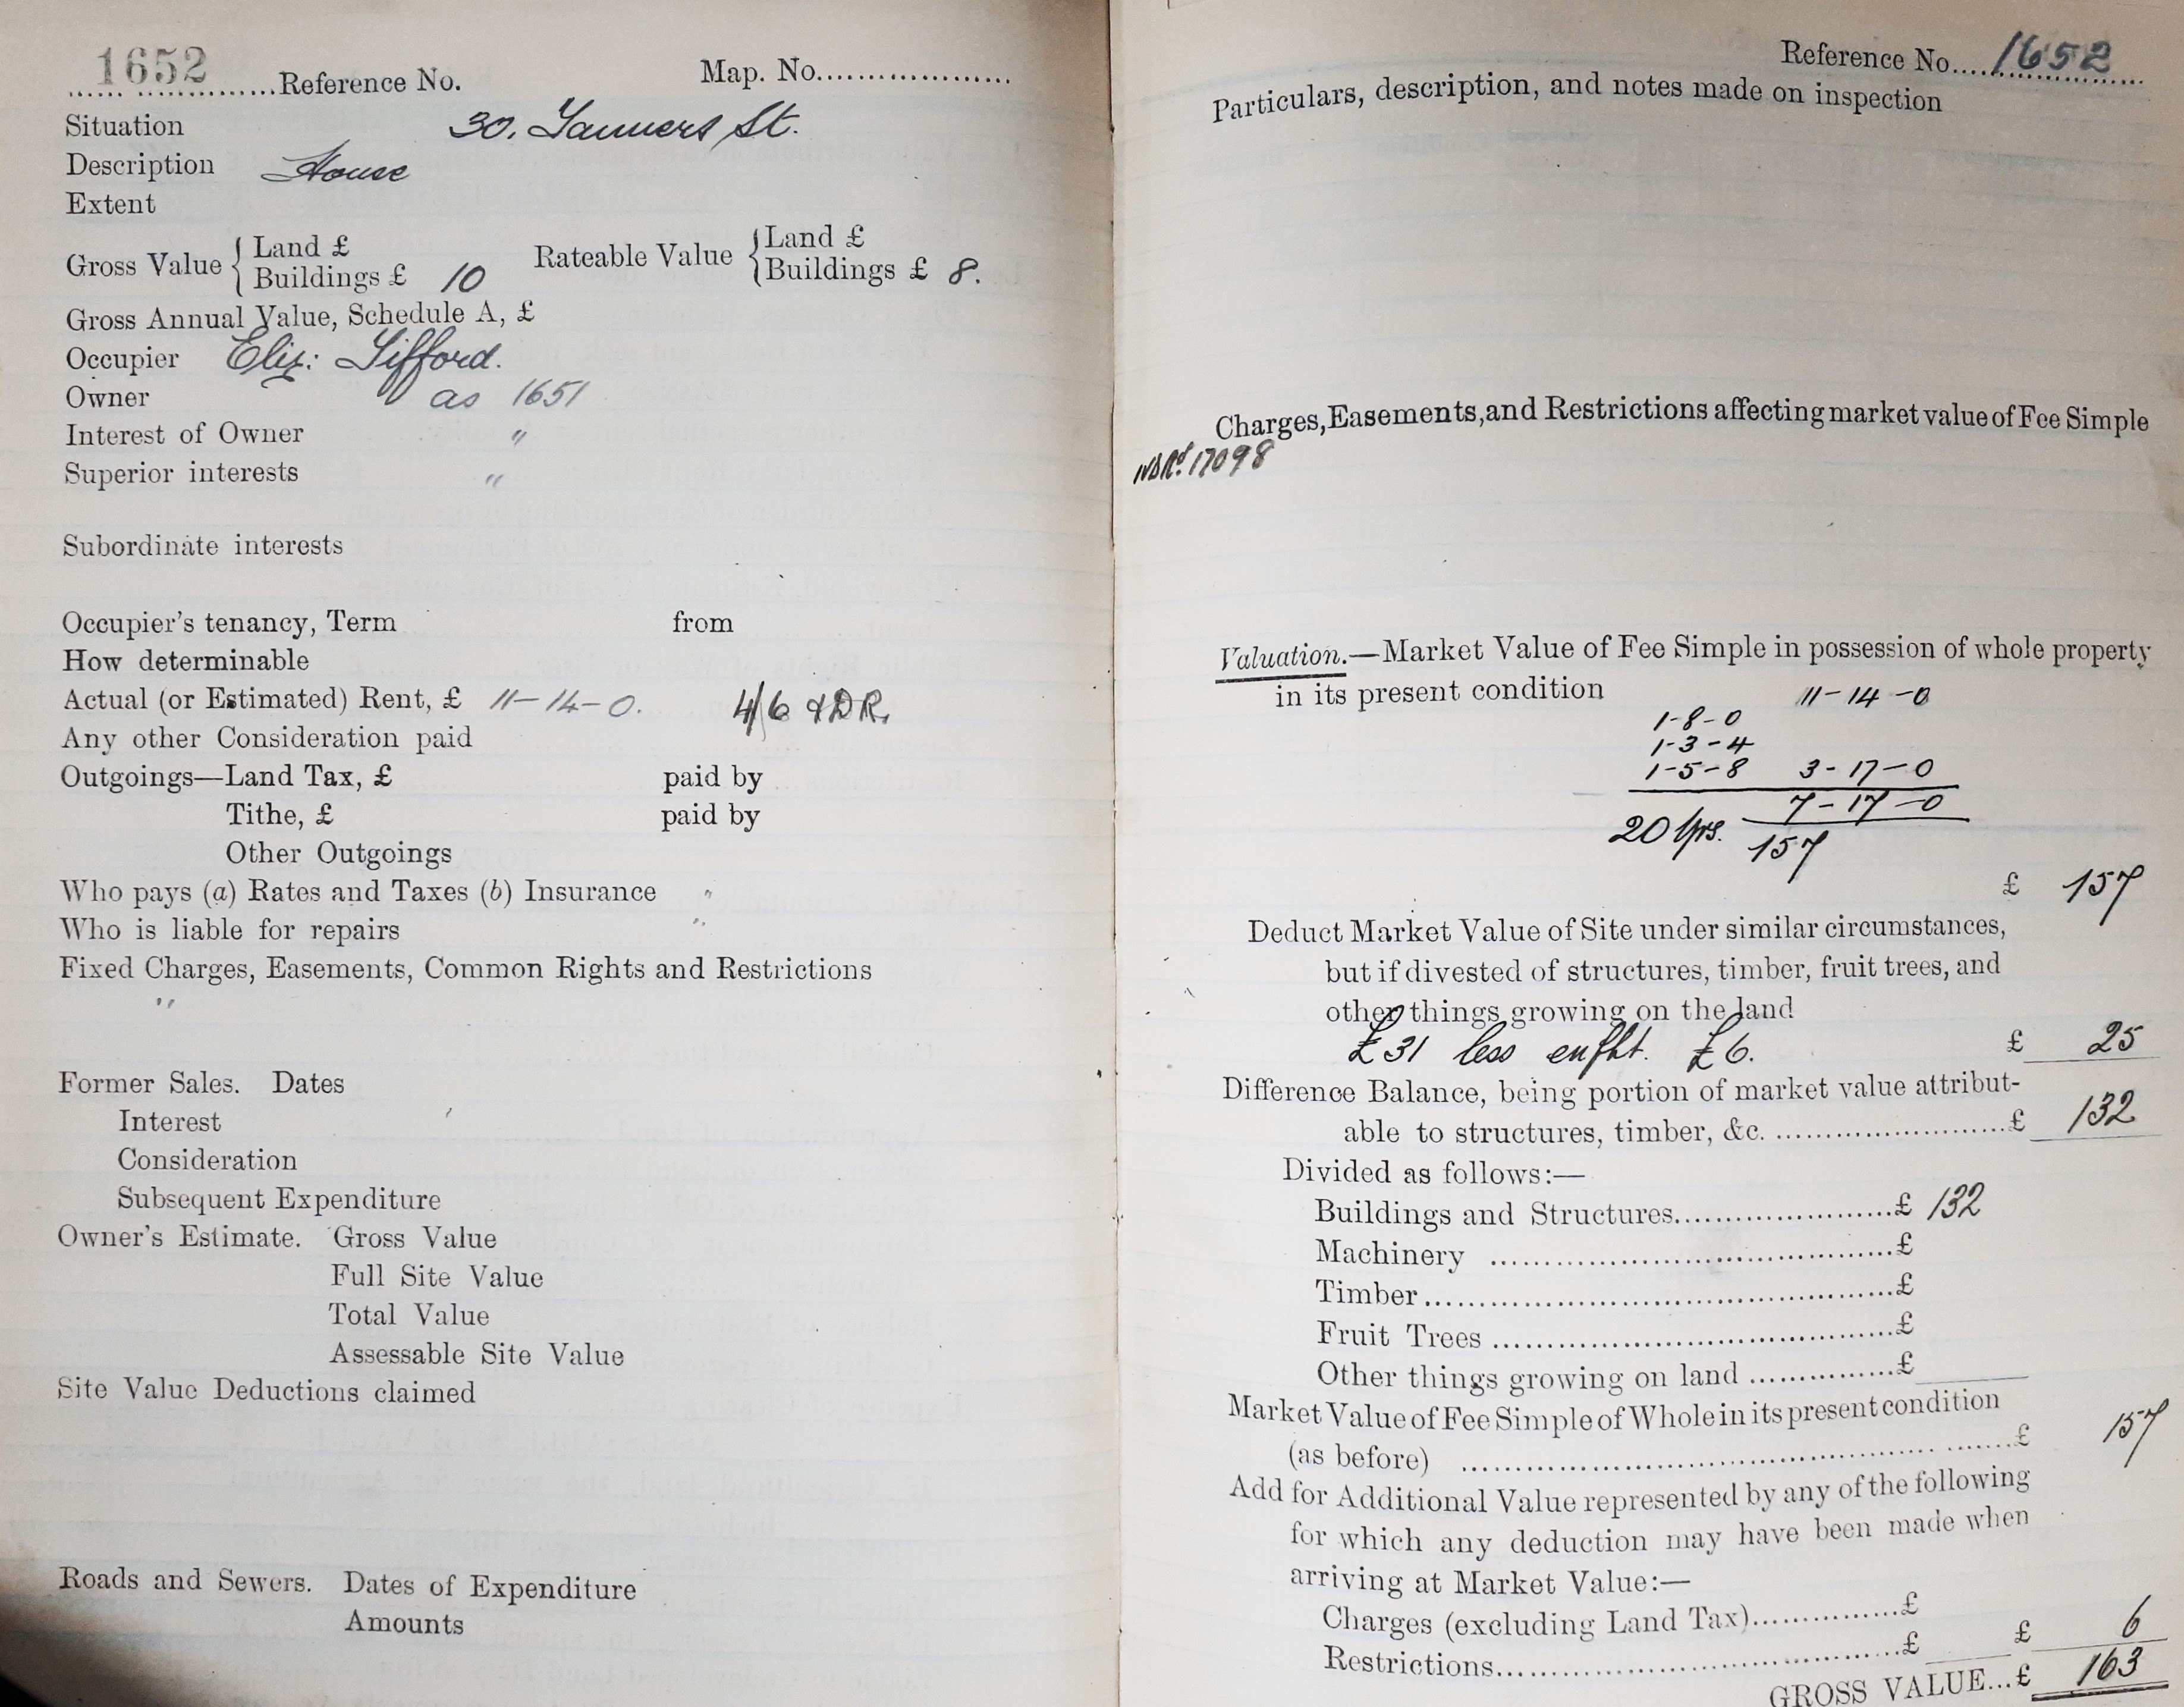 1652
Reference No.
Map. No.
Situation 30, Tanners St.
Description House
Extent
Gross Value { Land £
Buildings £ 10
Rateable Value { Land £
Buildings £ 8.
Gross Annual Value, Schedule A, £
Occupier Eliz: Gifford.
Owner as 1651
Interest of Owner "
Superior interests "
Subordinate interests
Occupier's tenancy, Term from
How determinable
Actual (or Estimated) Rent, £ 11-14-0. 4/6 & D R.
Any other Consideration paid
Outgoings—Land Tax, £ paid by
Tithe, £ paid by
Other Outgoings
Who pays (a) Rates and Taxes (b) Insurance "
Who is liable for repairs "
Fixed Charges, Easements, Common Rights and Restrictions
"
Former Sales. Dates
Interest
Consideration
Subsequent Expenditure
Owner's Estimate. Gross Value
Full Site Value
Total Value
Assessable Site Value
Site Value Deductions claimed
Roads and Sewers. Dates of Expenditure
Amounts
Reference No. 1652
Particulars, description, and notes made on inspection
Charges, Easements, and Restrictions affecting market value of Fee Simple
17098
Valuation.—Market Value of Fee Simple in possession of whole property
in its present condition 11-14-0
1-8-0
1-3-4
1-5-8 3-17-0
7-17-0
20 Yrs. 157
£ 157
Deduct Market Value of Site under similar circumstances,
but if divested of structures, timber, fruit trees, and
other things growing on the land
£31 less enfht. £6. £ 25
Difference Balance, being portion of market value attribut-
able to structures, timber, &c. £ 132
Divided as follows:—
Buildings and Structures £ 132
Machinery £
Timber £
Fruit Trees £
Other things growing on land £
Market Value of Fee Simple of Whole in its present condition
(as before) £ 157
Add for Additional Value represented by any of the following
for which any deduction may have been made when
arriving at Market Value:—
Charges (excluding Land Tax) £
Restrictions £ £ 6
GROSS VALUE...£ 163